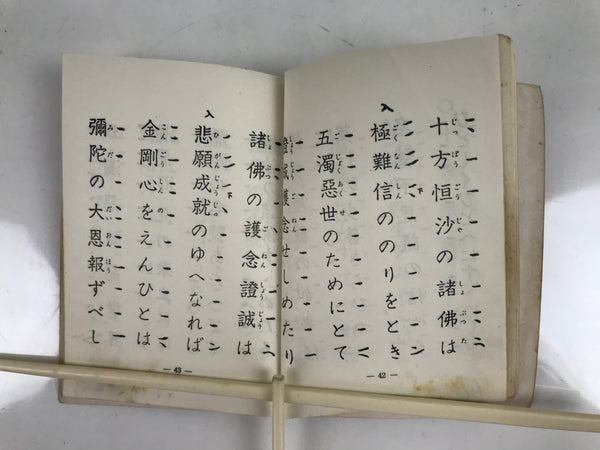 十方恒沙の諸佛は
極難信ののりをとき
五濁惡世のためにとて
證誠護念せしめたり
— 42 —
諸佛の護念證誠は
悲願成就のゆへなれば
金剛心をえんひとは
彌陀の大恩報ずべし
— 43 —